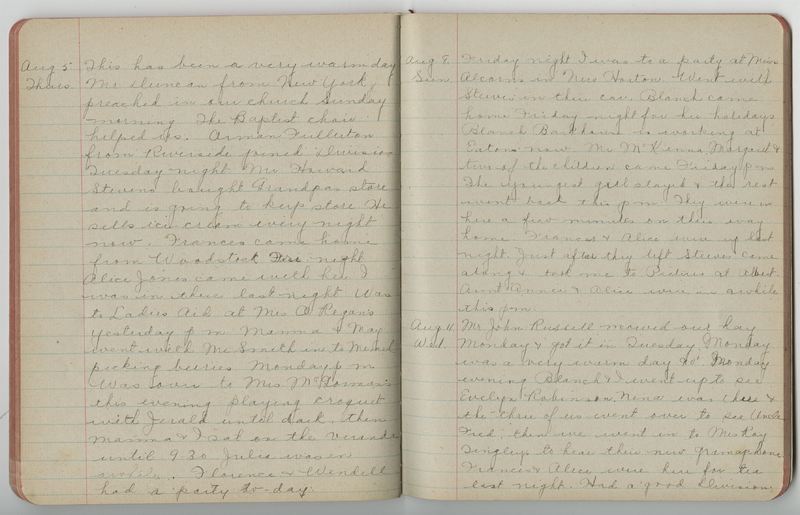 Aug 5. This has been a very warm day
Thurs. Mr Duncan from New York,
preached in our church Sunday
morning The Baptist choir
helped us. Arman Fullerton
from Riverside joined Division
Tuesday night Mr Howard
Stevens bought Grandpas store
and is going to keep store He
sells ice cream every night
now. Frances came home
from Woodstock Fri. night
Alice Jones came with her I
was in there last night Was
to Ladies Aid at Mrs O Regan's
yesterday p m Mamma & May
went with Mr Smith in to
picking berries Monday p m
Was over to Mrs
this evening playing croquet
with Jerald until dark, then
mamma & I sat on the veranda
until 9.30 Julia was in
awhile. Florence & Wendell
had a party to-day.
Aug 8. Friday night I was to a party at Miss
Sun. Alcorns in Mrs Horton Went with
Steeves in their car. Blanch came
home Friday night for her holidays
Blanch is working at
Eatons now. Mr McKenna Margaret &
two of the children came Friday p m
The youngest girl stayed & the rest
went back this p m. They were in
here a few minutes on their way
home. Frances & Alice were up last
night. Just after they left Steeves came
along & took me to Pictures at Albert
Aunt Annie & Alice were in awhile
this p m.
Aug 11. Mr John Russell mowed our hay
Wed. Monday & got it in Tuesday Monday
was a very warm day Monday
evening Blanch & I went up to see
Evelyn Robinson, Nina was there &
the three of us went over to see Uncle
Fred, then we went in to Mrs Ray
Tingleys to hear their new gramaphone
Frances & Alice were here for tea
last night. Had a good Division.